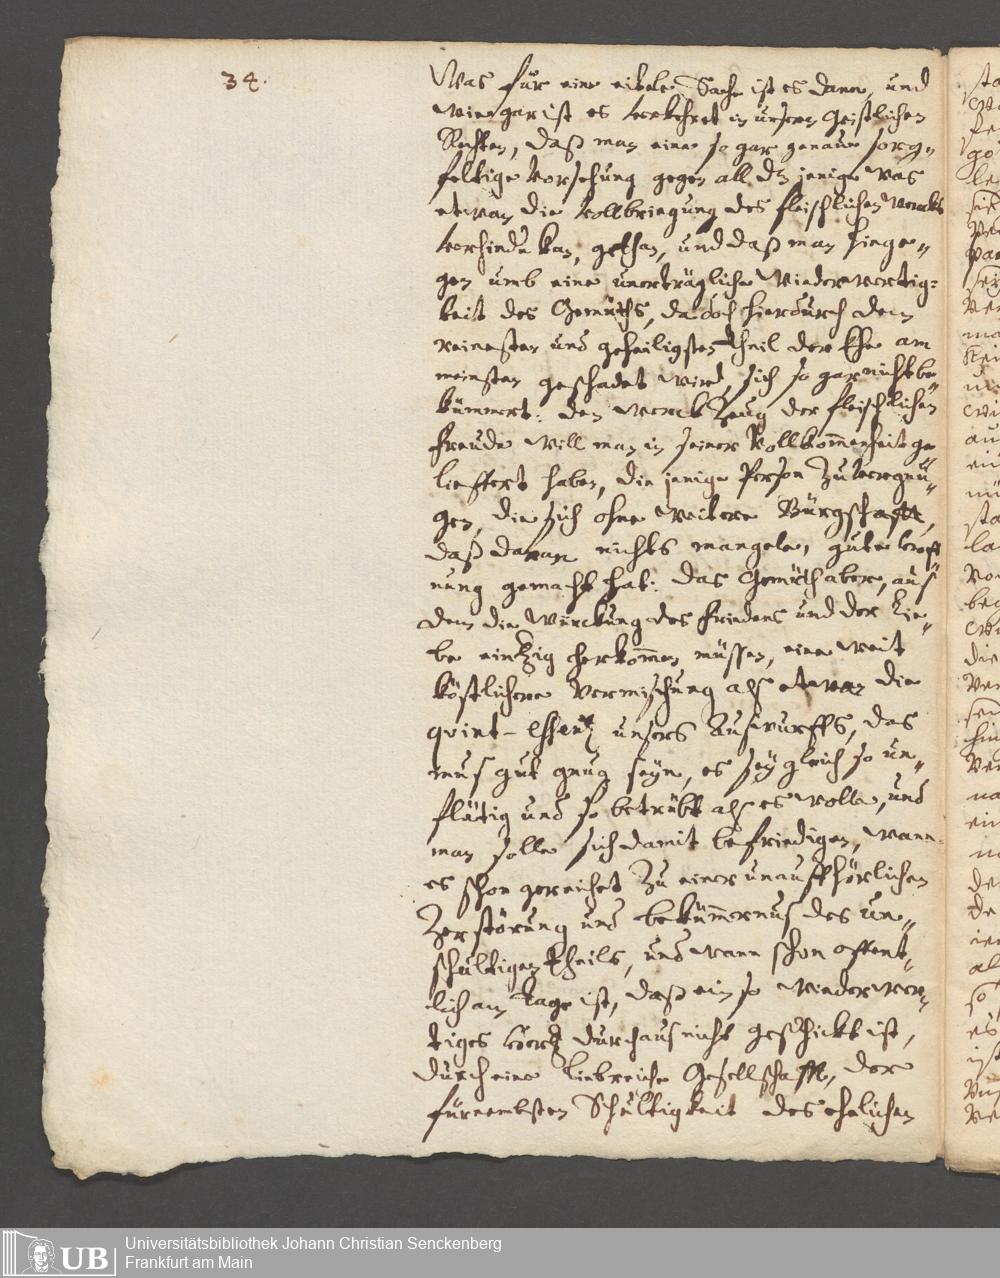 34.
Was für eine eitele Sache ist es dann, und
wie gar ist es verkehret in unsern Geistlichen
Rechten, daß man eine so gar genaue sorg-
feltige Vorsehung gegen all dz jenige was
etwan die Vollbringung des fleischlichen wercks
verhindern kan, gethan, und daß man hinge-
gen umb eine unerträgliche Wiederwertig-
keit des Gemüths, da doch hierdurch dem
reinesten und geheiligsten theil der Ehe am
meinsten geschadet wird, sich so gar nicht be-
kümmert: den werck Zeug der fleischlichen
freude will man in seiner Vollkommenheit ge-
lieffert haben, die jenige Person Zuvergnü-
gen, die sich ohne weitere Bürgschafft,
daß daran nichts mangele, gute hoff
nung gemacht hat: das Gemüth aber, auß
dem die Würckung des friedens und der Lie-
be eintzig herkommen müssen, eine weit
köstlichere Vermischung alß etwan die
quint-Essentz unsers Außwurffs, das
mus gut gnug seyn, es sey gleich so un-
flätig und so betrübt alß es wolle, und
man solle sich damit befriedigen, wann
es schon gereichet Zu einer unauffhörlichen
Zerstörung und bekümmernus des un-
schuldigen theils, und wann schon offent-
lich am tage ist, daß ein so wiederwer-
tiges Hertz durchaus nicht geschickt ist,
durch eine liebreiche Gesellschafft, der
fürnembsten Schuldigkeit des ehelichen
UB
Universitätsbibliothek Johann Christian Senckenberg
Frankfurt am Main